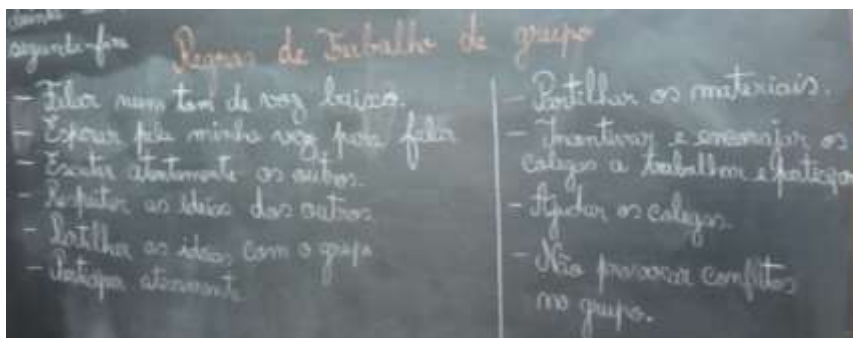 segunda-feira
Regras de Trabalho de grupo
- Falar num tom de voz baixo.
- Esperar pela minha vez para falar
- Escutar atentamente os outros.
- Respeitar as ideias dos outros
- Partilhar as ideias com o grupo
- Participar ativamente
- Partilhar os materiais.
- Incentivar e encorajar os
colegas a trabalhar e participar
- Ajudar os colegas.
- Não provocar conflitos
no grupo.